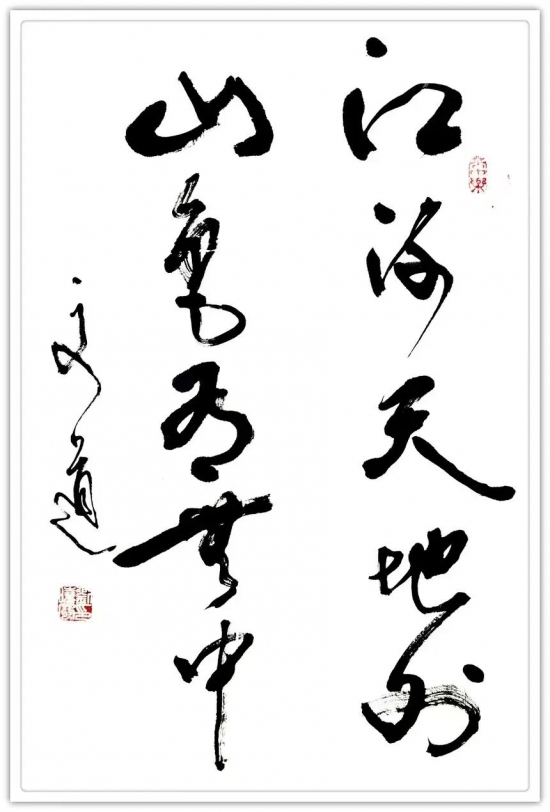 江流天地外
山色有無中
道